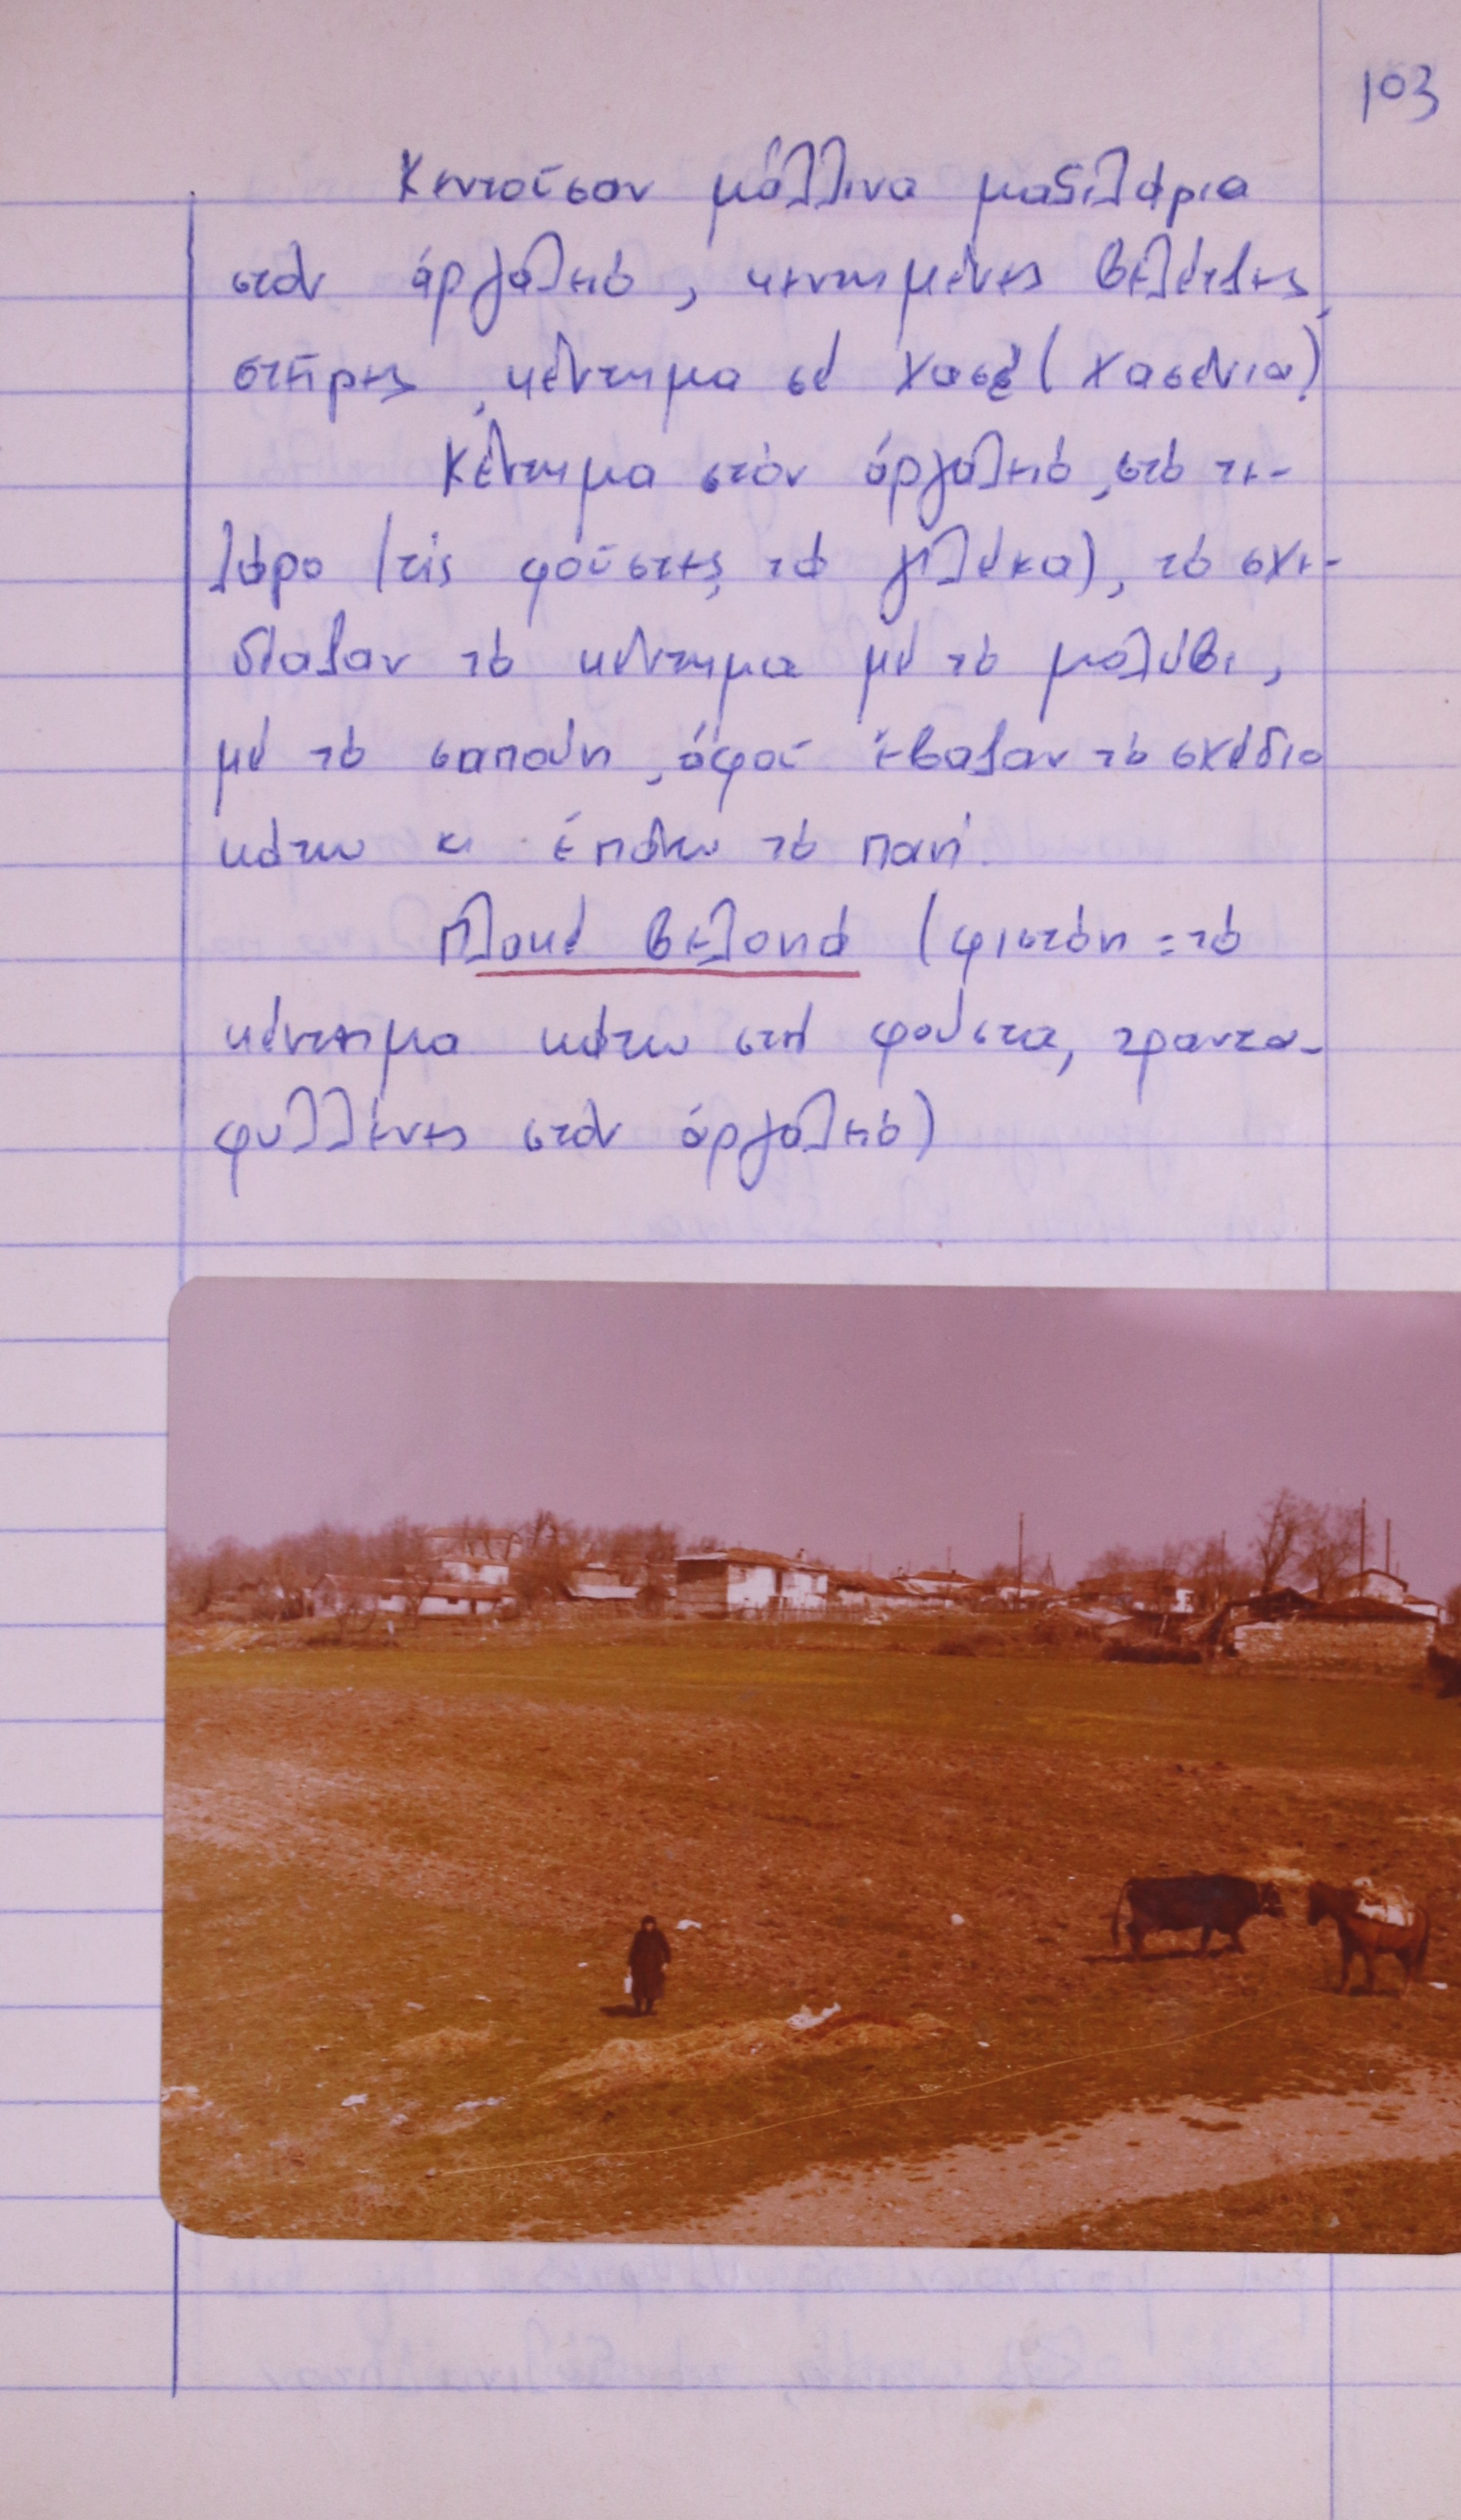 103
Κεντοῦσαν μάλλινα μαξιλάρια
στὸν ἀργαλειό, κεντημένες βελέντζες,
στεῖρες, κέντημα σέ χασέ (χασένια)
Κέντημα στόν ἀργαλειό, στό τε-
λάρο (τίς φοῦστες, τά γιλέκα), τό σχε-
δίαζαν τό κέντημα μέ τό μολύβι,
μέ τό σαπούνι, ἀφοῦ ἔβαζαν τό σχέδιο
κάτω κι ἐπάνω τό πανί.
Πλακέ βελονιά (φιστόνι = τό
κέντημα κάτω στή φούστα, τραντα-
φυλλένιες στόν ἀργαλειό)